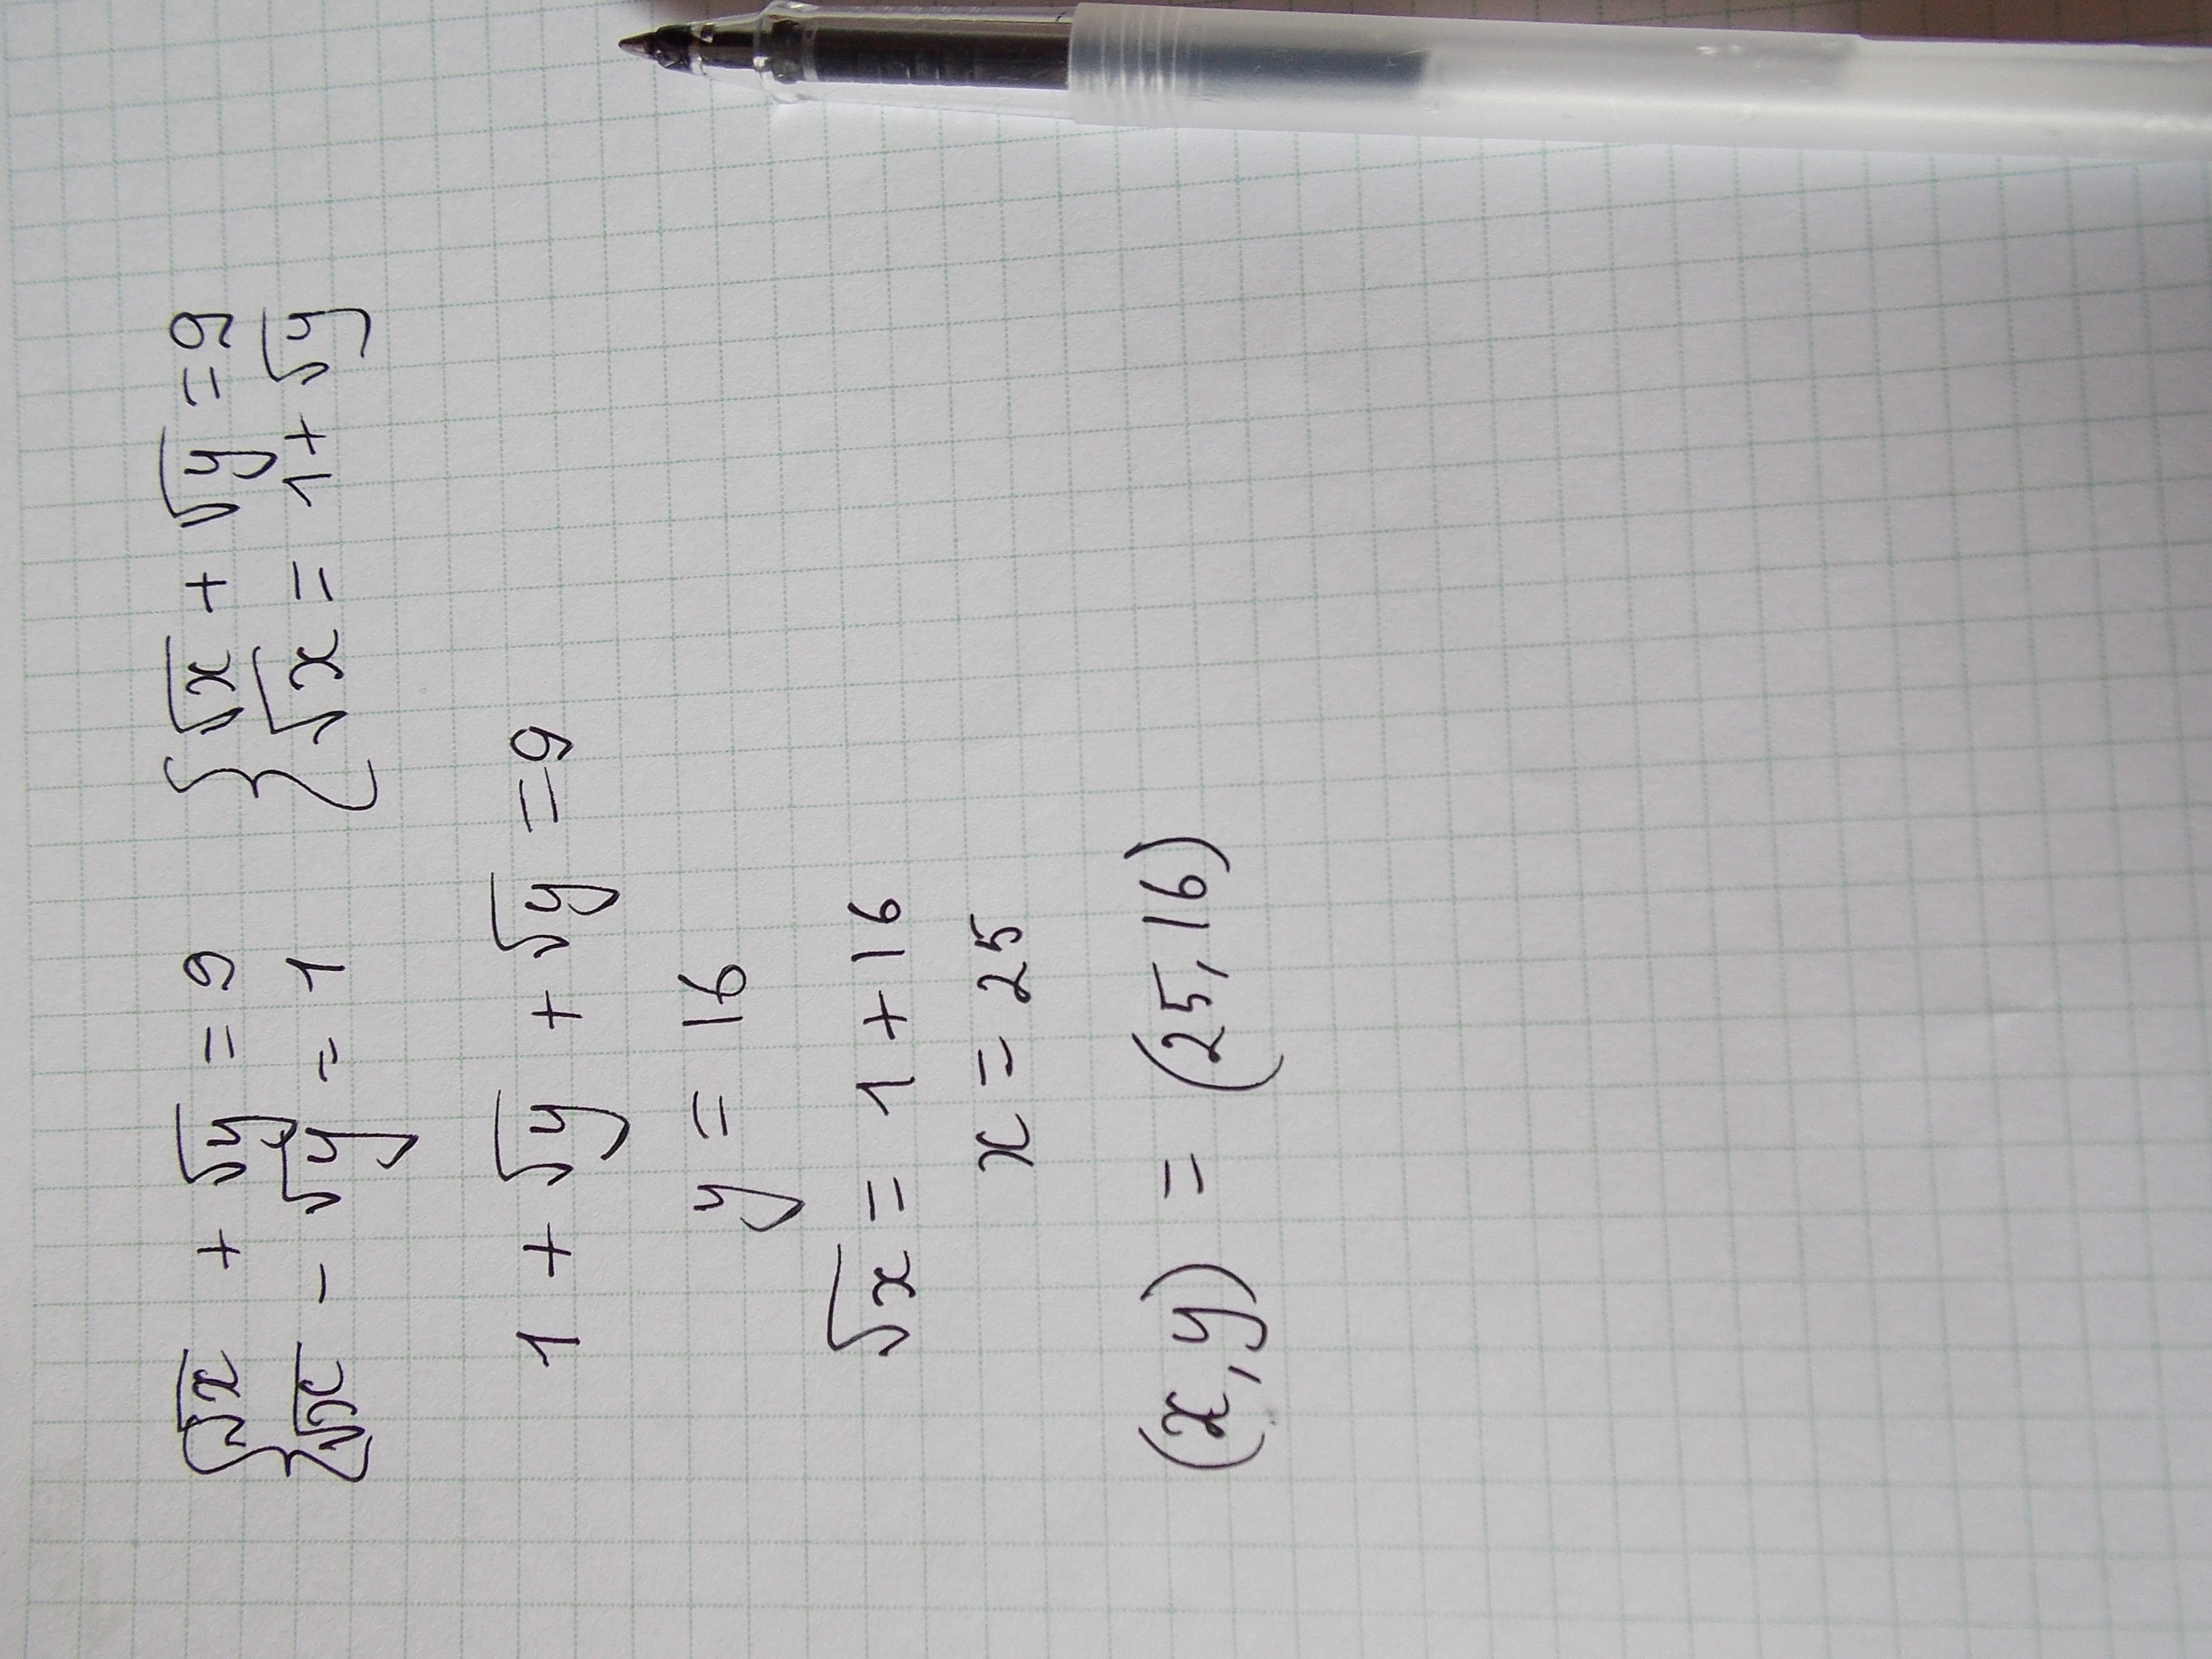 {√x + √y = 9 {√x + √y = 9
{√x - √y = 1 {√x = 1 + √y
1 + √y + √y = 9
y = 16
√x = 1 + 16
x = 25
(x, y) = (25, 16)